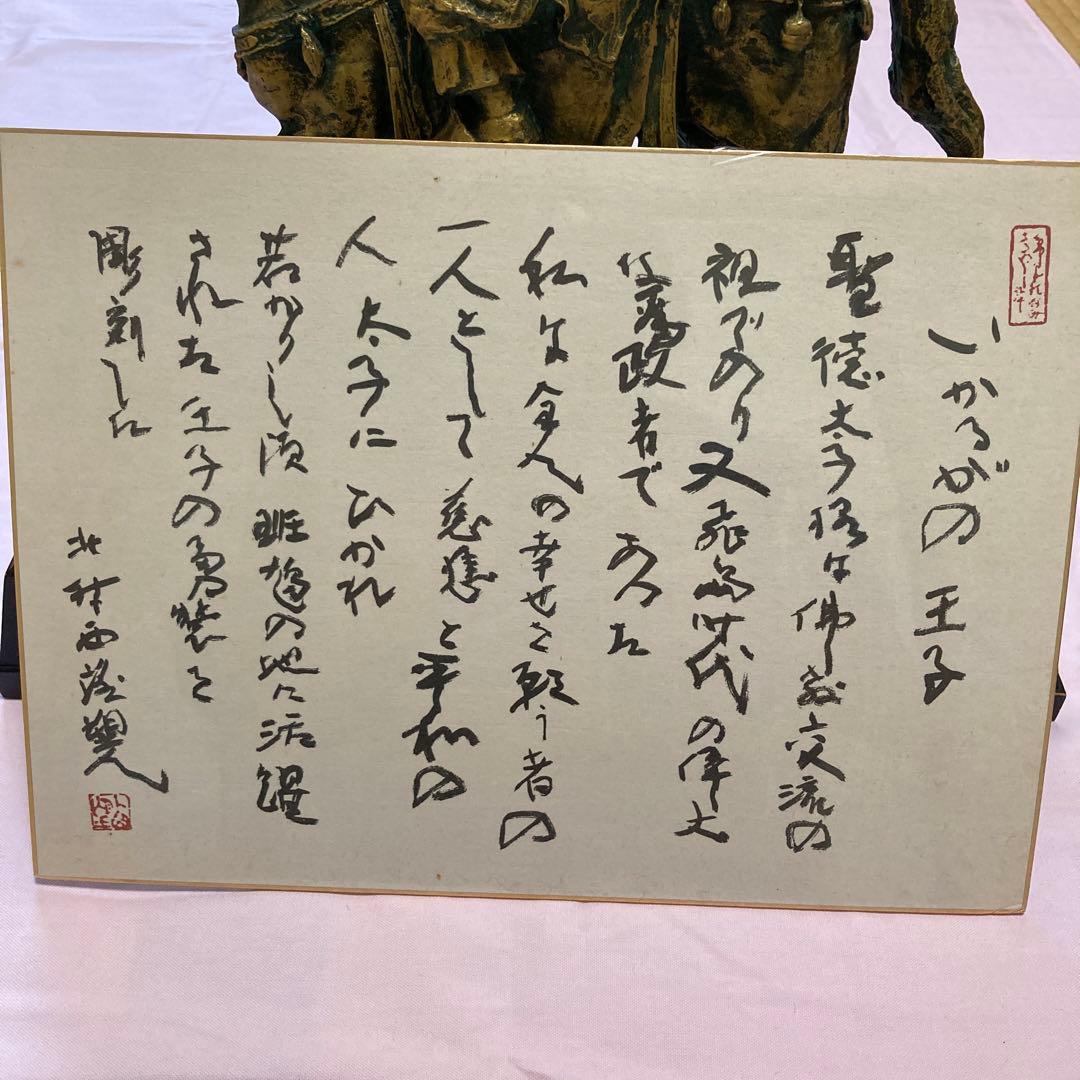 いかるがの 王子
聖徳太子様は佛教交流の
祖であり又飛鳥時代の偉大
な為政者であった
私は全人の幸せを願う者の
一人として 慈悲と平和の
人 太子に ひかれ
若かりし頃 斑鳩の地に活躍
された王子の勇姿を
彫刻した
北村西望